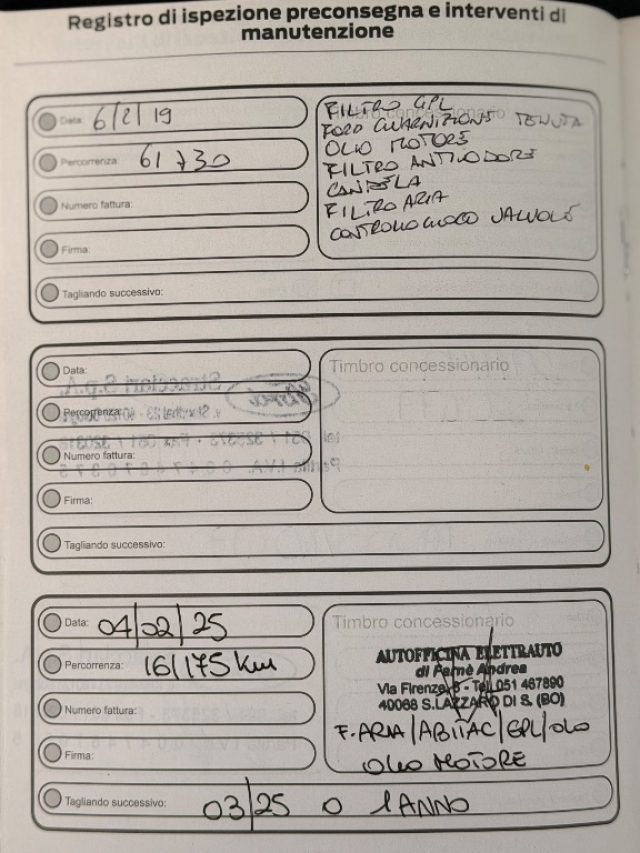 Registro di ispezione preconsegna e interventi di
manutenzione
Data: 6/2/19
Percorrenza: 61730
Numero fattura:
Firma:
Tagliando successivo:
Timbro concessionario
FILTRO GPL
FORD GUARNIZIONE TENUTA
OLIO MOTORE
FILTRO ANTIODORE
CANDELA
FILTRO ARIA
CONTROLLO GIOCO VALVOLE
Data:
Percorrenza:
Numero fattura:
Firma:
Tagliando successivo:
Timbro concessionario
Data: 04/02/25
Percorrenza: 161175 km
Numero fattura:
Firma:
Tagliando successivo: 03/25 o 1 ANNO
Timbro concessionario
AUTOFFICINA ELETTRAUTO
di Pernè Andrea
Via Firenze, - Tel. 051 467890
40068 S.LAZZARO DI S. (BO)
F. ARIA/ABITAC/GPL/OLO
OLIO MOTORE